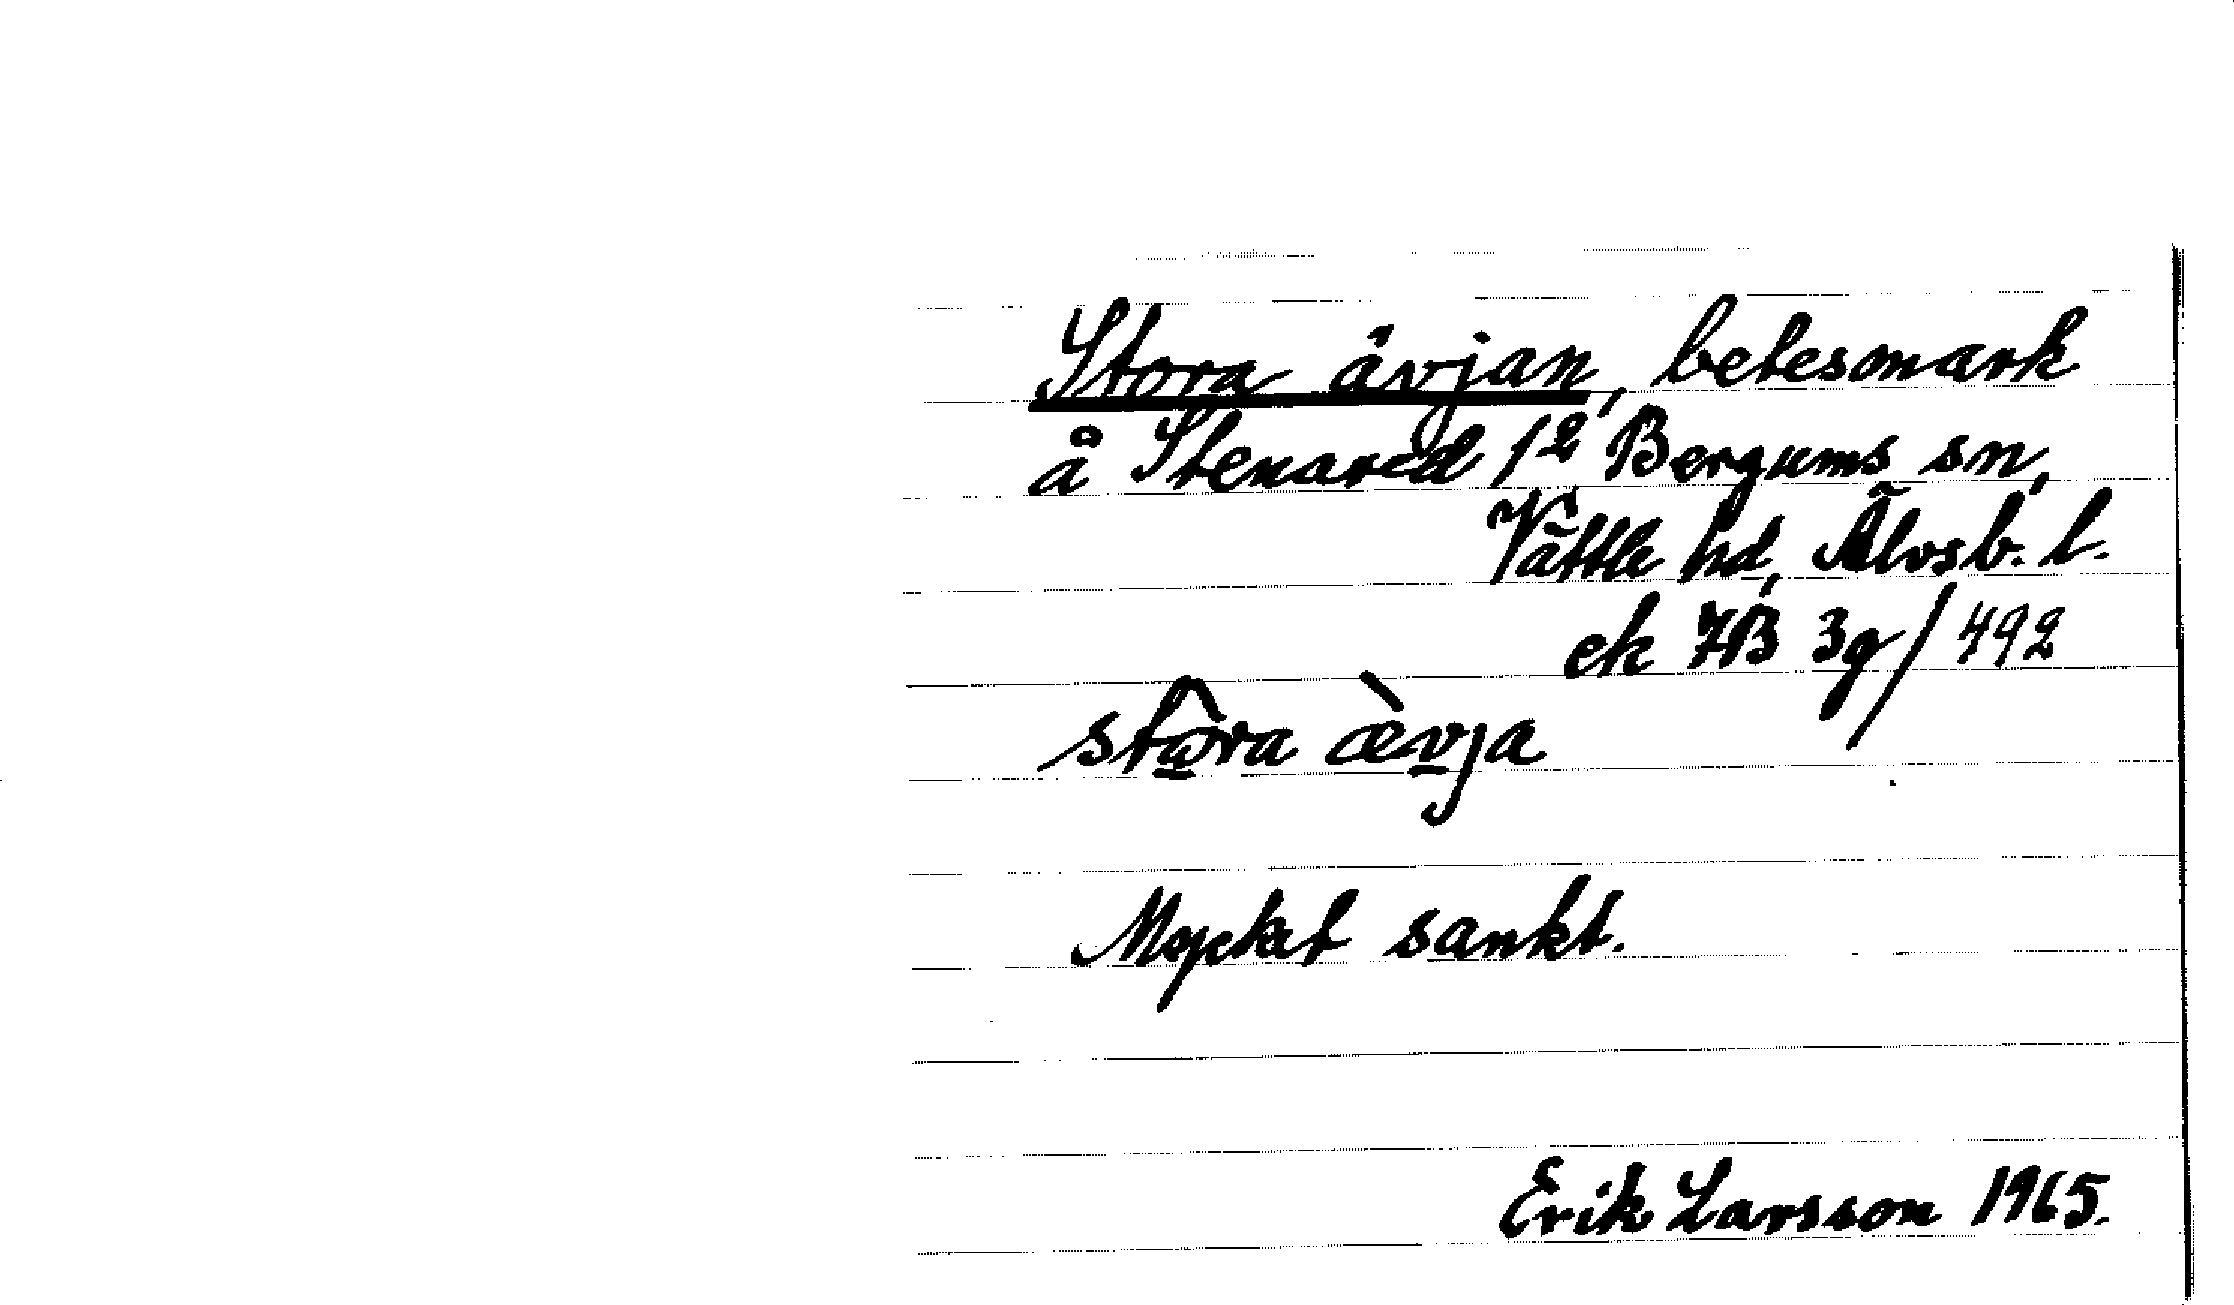 Stora ävjan, betesmark
å Stenared 12 Bergums sn,
Vättle hd, Älvsb. l.
ek 7B 3g/492
stôra æ̀vja
Mycket sankt.
Erik Larsson 1965.